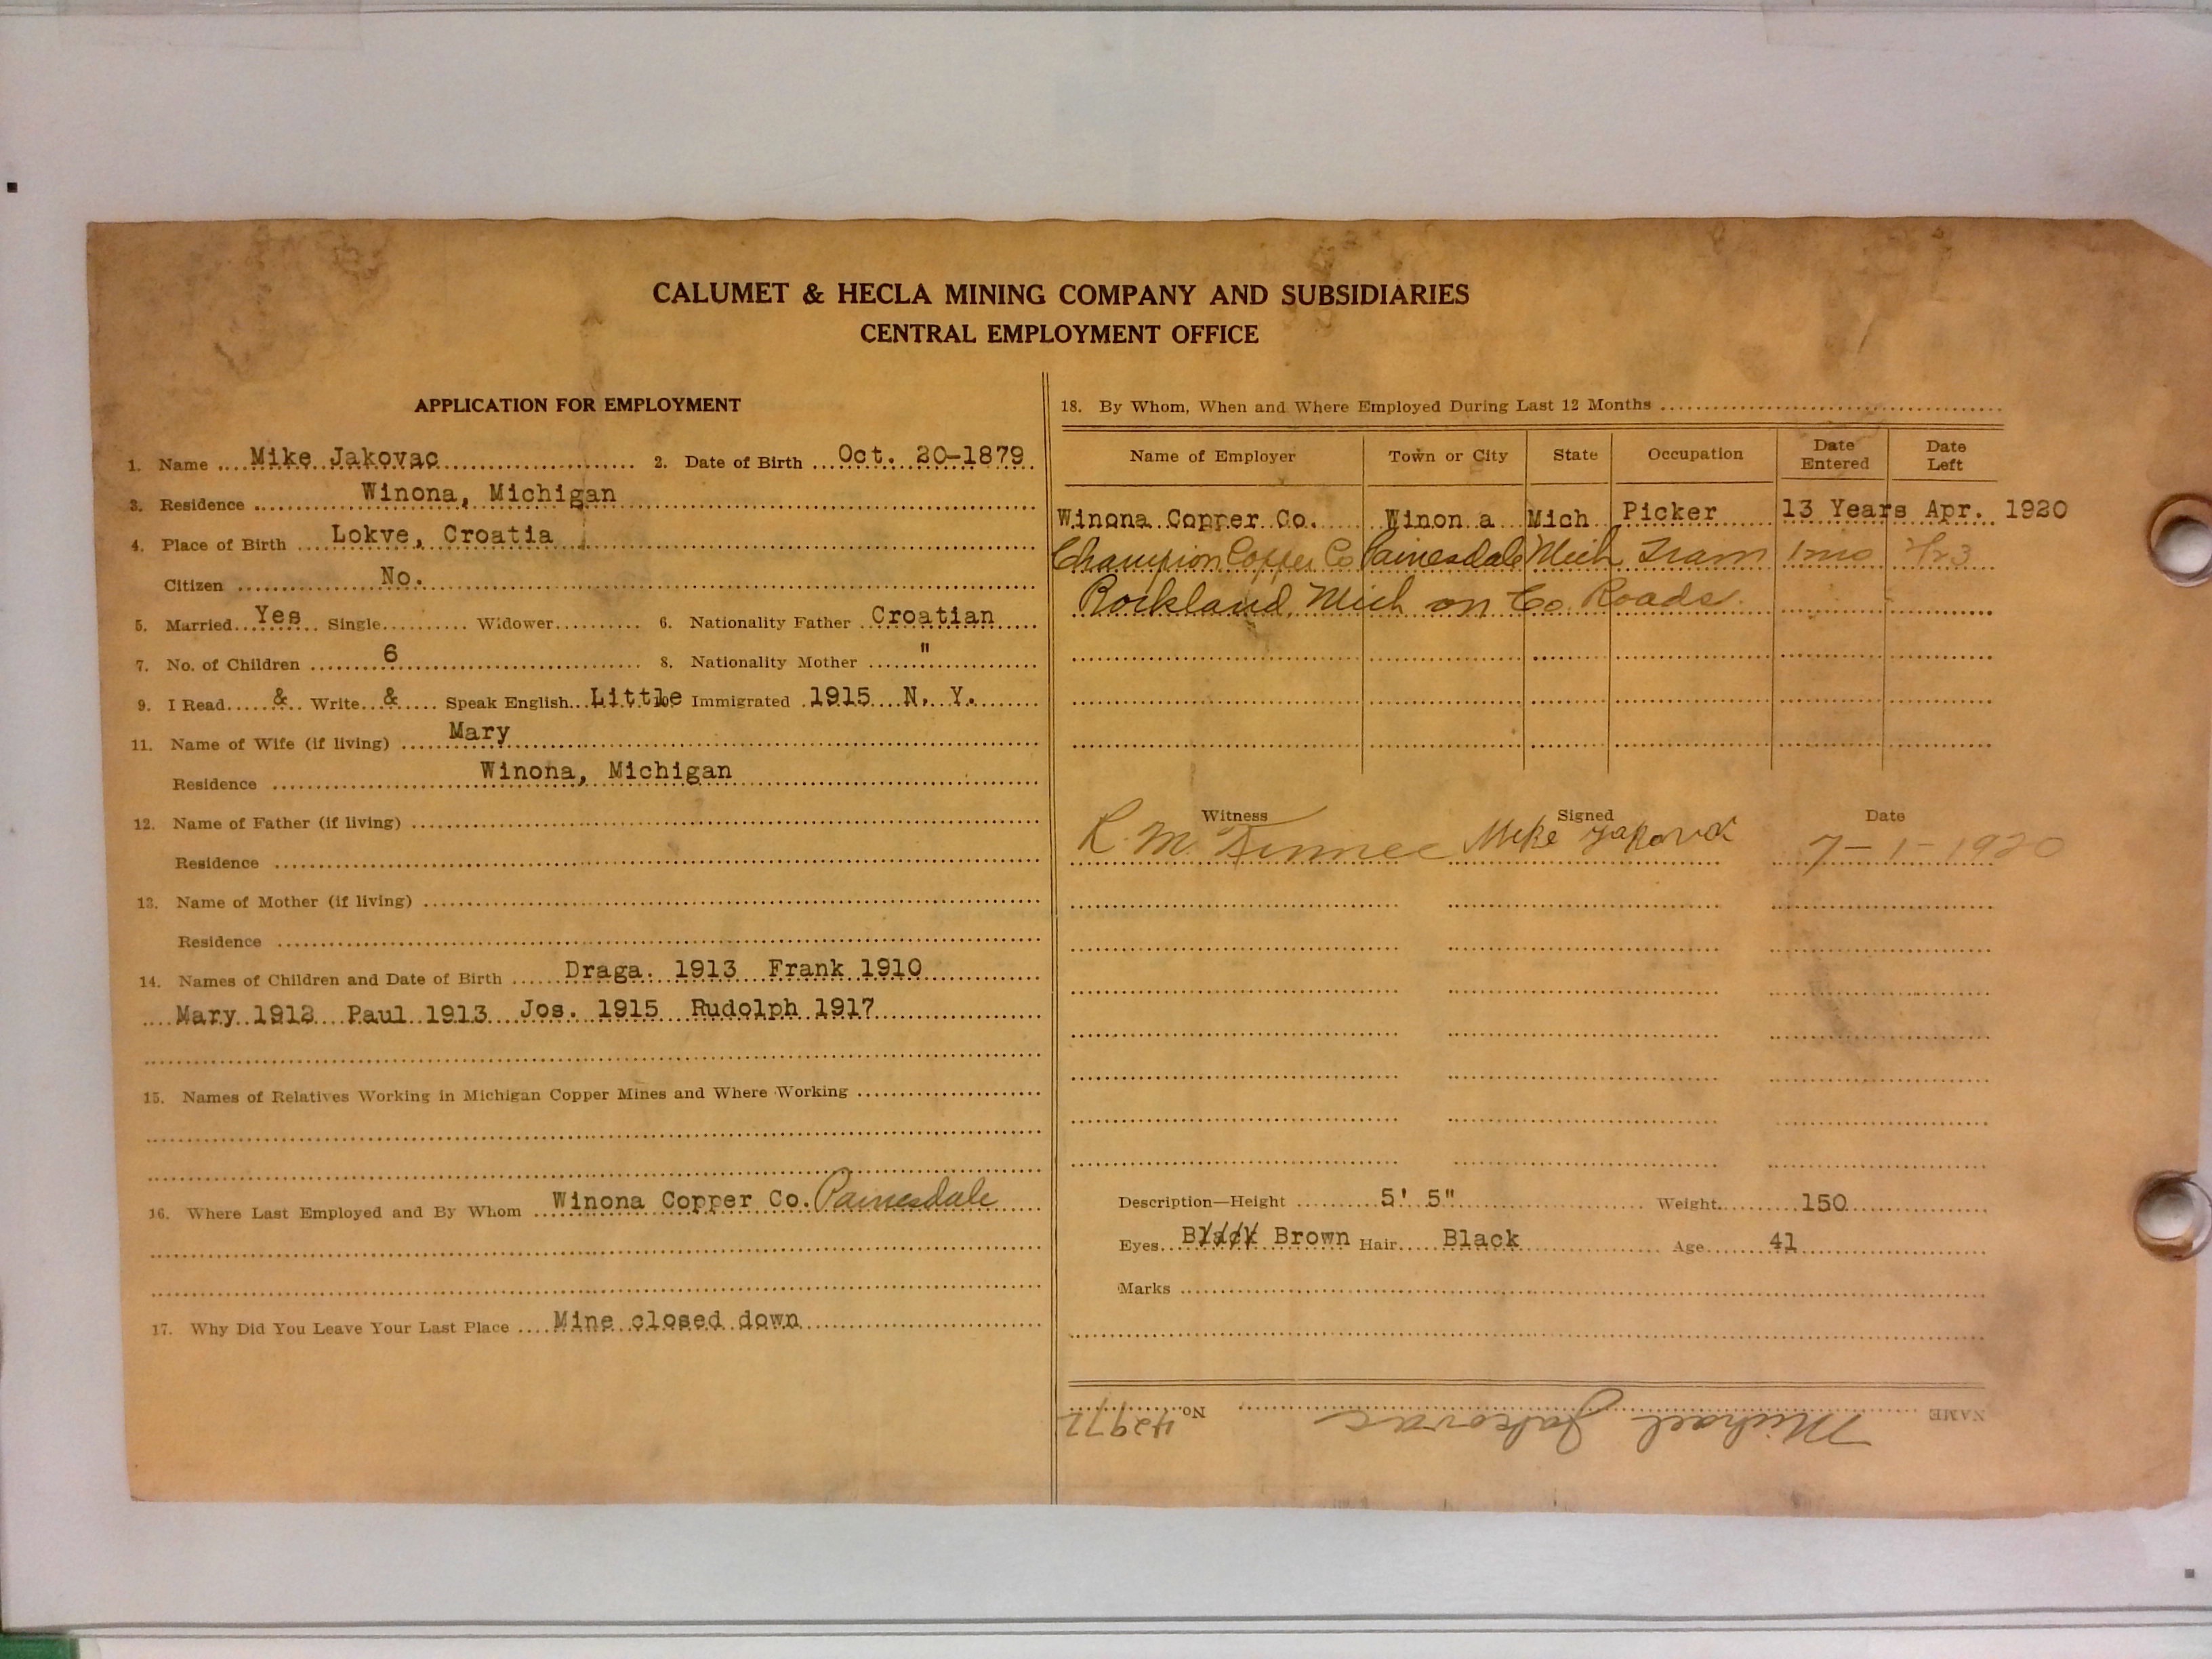 CALUMET & HECLA MINING COMPANY AND SUBSIDIARIES
CENTRAL EMPLOYMENT OFFICE
APPLICATION FOR EMPLOYMENT
1. Name Mike Jakovac 2. Date of Birth Oct. 20-1879
3. Residence Winona, Michigan
4. Place of Birth Lokve, Croatia
Citizen No.
5. Married Yes Single Widower 6. Nationality Father Croatian
7. No. of Children 6 8. Nationality Mother "
9. I Read & Write & Speak English Little 10. Immigrated 1915 N. Y.
11. Name of Wife (if living) Mary
Residence Winona, Michigan
12. Name of Father (if living)
Residence
13. Name of Mother (if living)
Residence
14. Names of Children and Date of Birth Draga. 1913 Frank 1910
Mary 1912 Paul 1913 Jos. 1915 Rudolph 1917
15. Names of Relatives Working in Michigan Copper Mines and Where Working
16. Where Last Employed and By Whom Winona Copper Co. Painesdale
17. Why Did You Leave Your Last Place Mine closed down
18. By Whom, When and Where Employed During Last 12 Months
Name of Employer Town or City State Occupation Date Entered Date Left
Winona Copper Co. Winon a Mich Picker 13 Years Apr. 1920
Champion Copper Co Painesdale Mich Tram 1 mo
Rockland Mich on Co. Roads.
Witness Signed Date
Mike 7-1-1920
Description—Height 5' 5" Weight 150
Eyes Black Brown Hair Black Age 41
Marks
NAME Michael Jakovac No. 42972